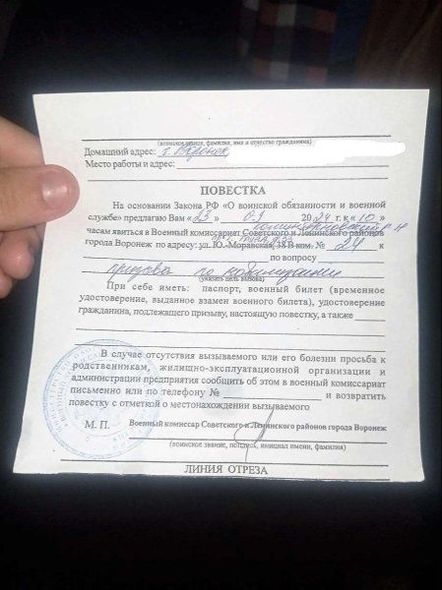 (воинское звание, фамилия, имя и отчество гражданина)
Домашний адрес: г. Воронеж,
Место работы и адрес:
ПОВЕСТКА
На основании Закона РФ «О воинской обязанности и военной
службе» предлагаю Вам « 23 » 01 2024 г. к « 10 »
часам явиться в Военный комиссариат Советского и Ленинского районов
города Воронеж по адресу: ул. Ю.-Моравская, 38 В ком. № 24 к
по вопросу
призыва по мобилизации
(указать цель вызова)
При себе иметь: паспорт, военный билет (временное
удостоверение, выданное взамен военного билета), удостоверение
гражданина, подлежащего призыву, настоящую повестку, а также
В случае отсутствия вызываемого или его болезни просьба к
родственникам, жилищно-эксплуатационной организации и
администрации предприятия сообщить об этом в военный комиссариат
письменно или по телефону № и возвратить
повестку с отметкой о местонахождении вызываемого
М. П. Военный комиссар Советского и Ленинского районов города Воронеж
(воинское звание, подпись, инициал имени, фамилия)
ЛИНИЯ ОТРЕЗА